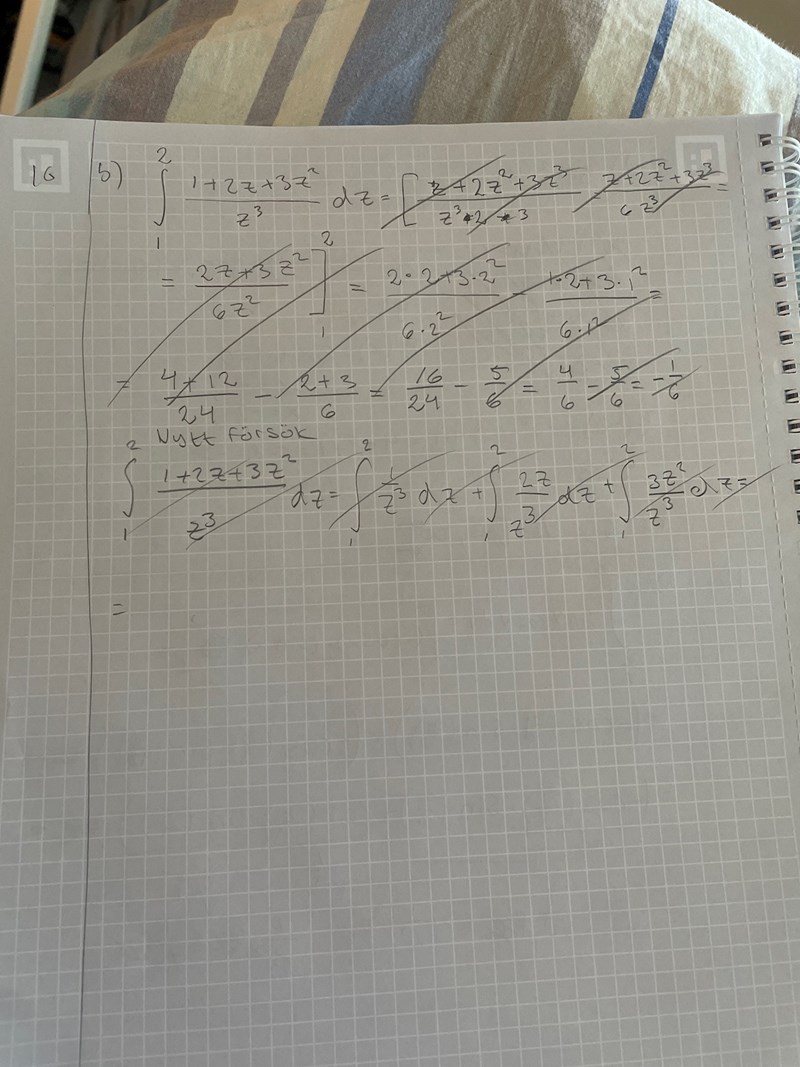 16 b) ∫₁² (1+2z+3z²)/z³ dz = [ (z+2z²+3z³)/(z³·2·3) (z+2z²+3z³)/(6z³) =
= (2z+3z²)/(6z²) ]₁² = (2·2+3·2²)/(6·2²) - (1·2+3·1²)/(6·1²) =
= (4+12)/24 - (2+3)/6 = 16/24 - 5/6 = 4/6 - 5/6 = -1/6
Nytt försök
∫₁² (1+2z+3z²)/z³ dz = ∫₁² 1/z³ dz + ∫₁² 2z/z³ dz + ∫₁² 3z²/z³ dz =
=